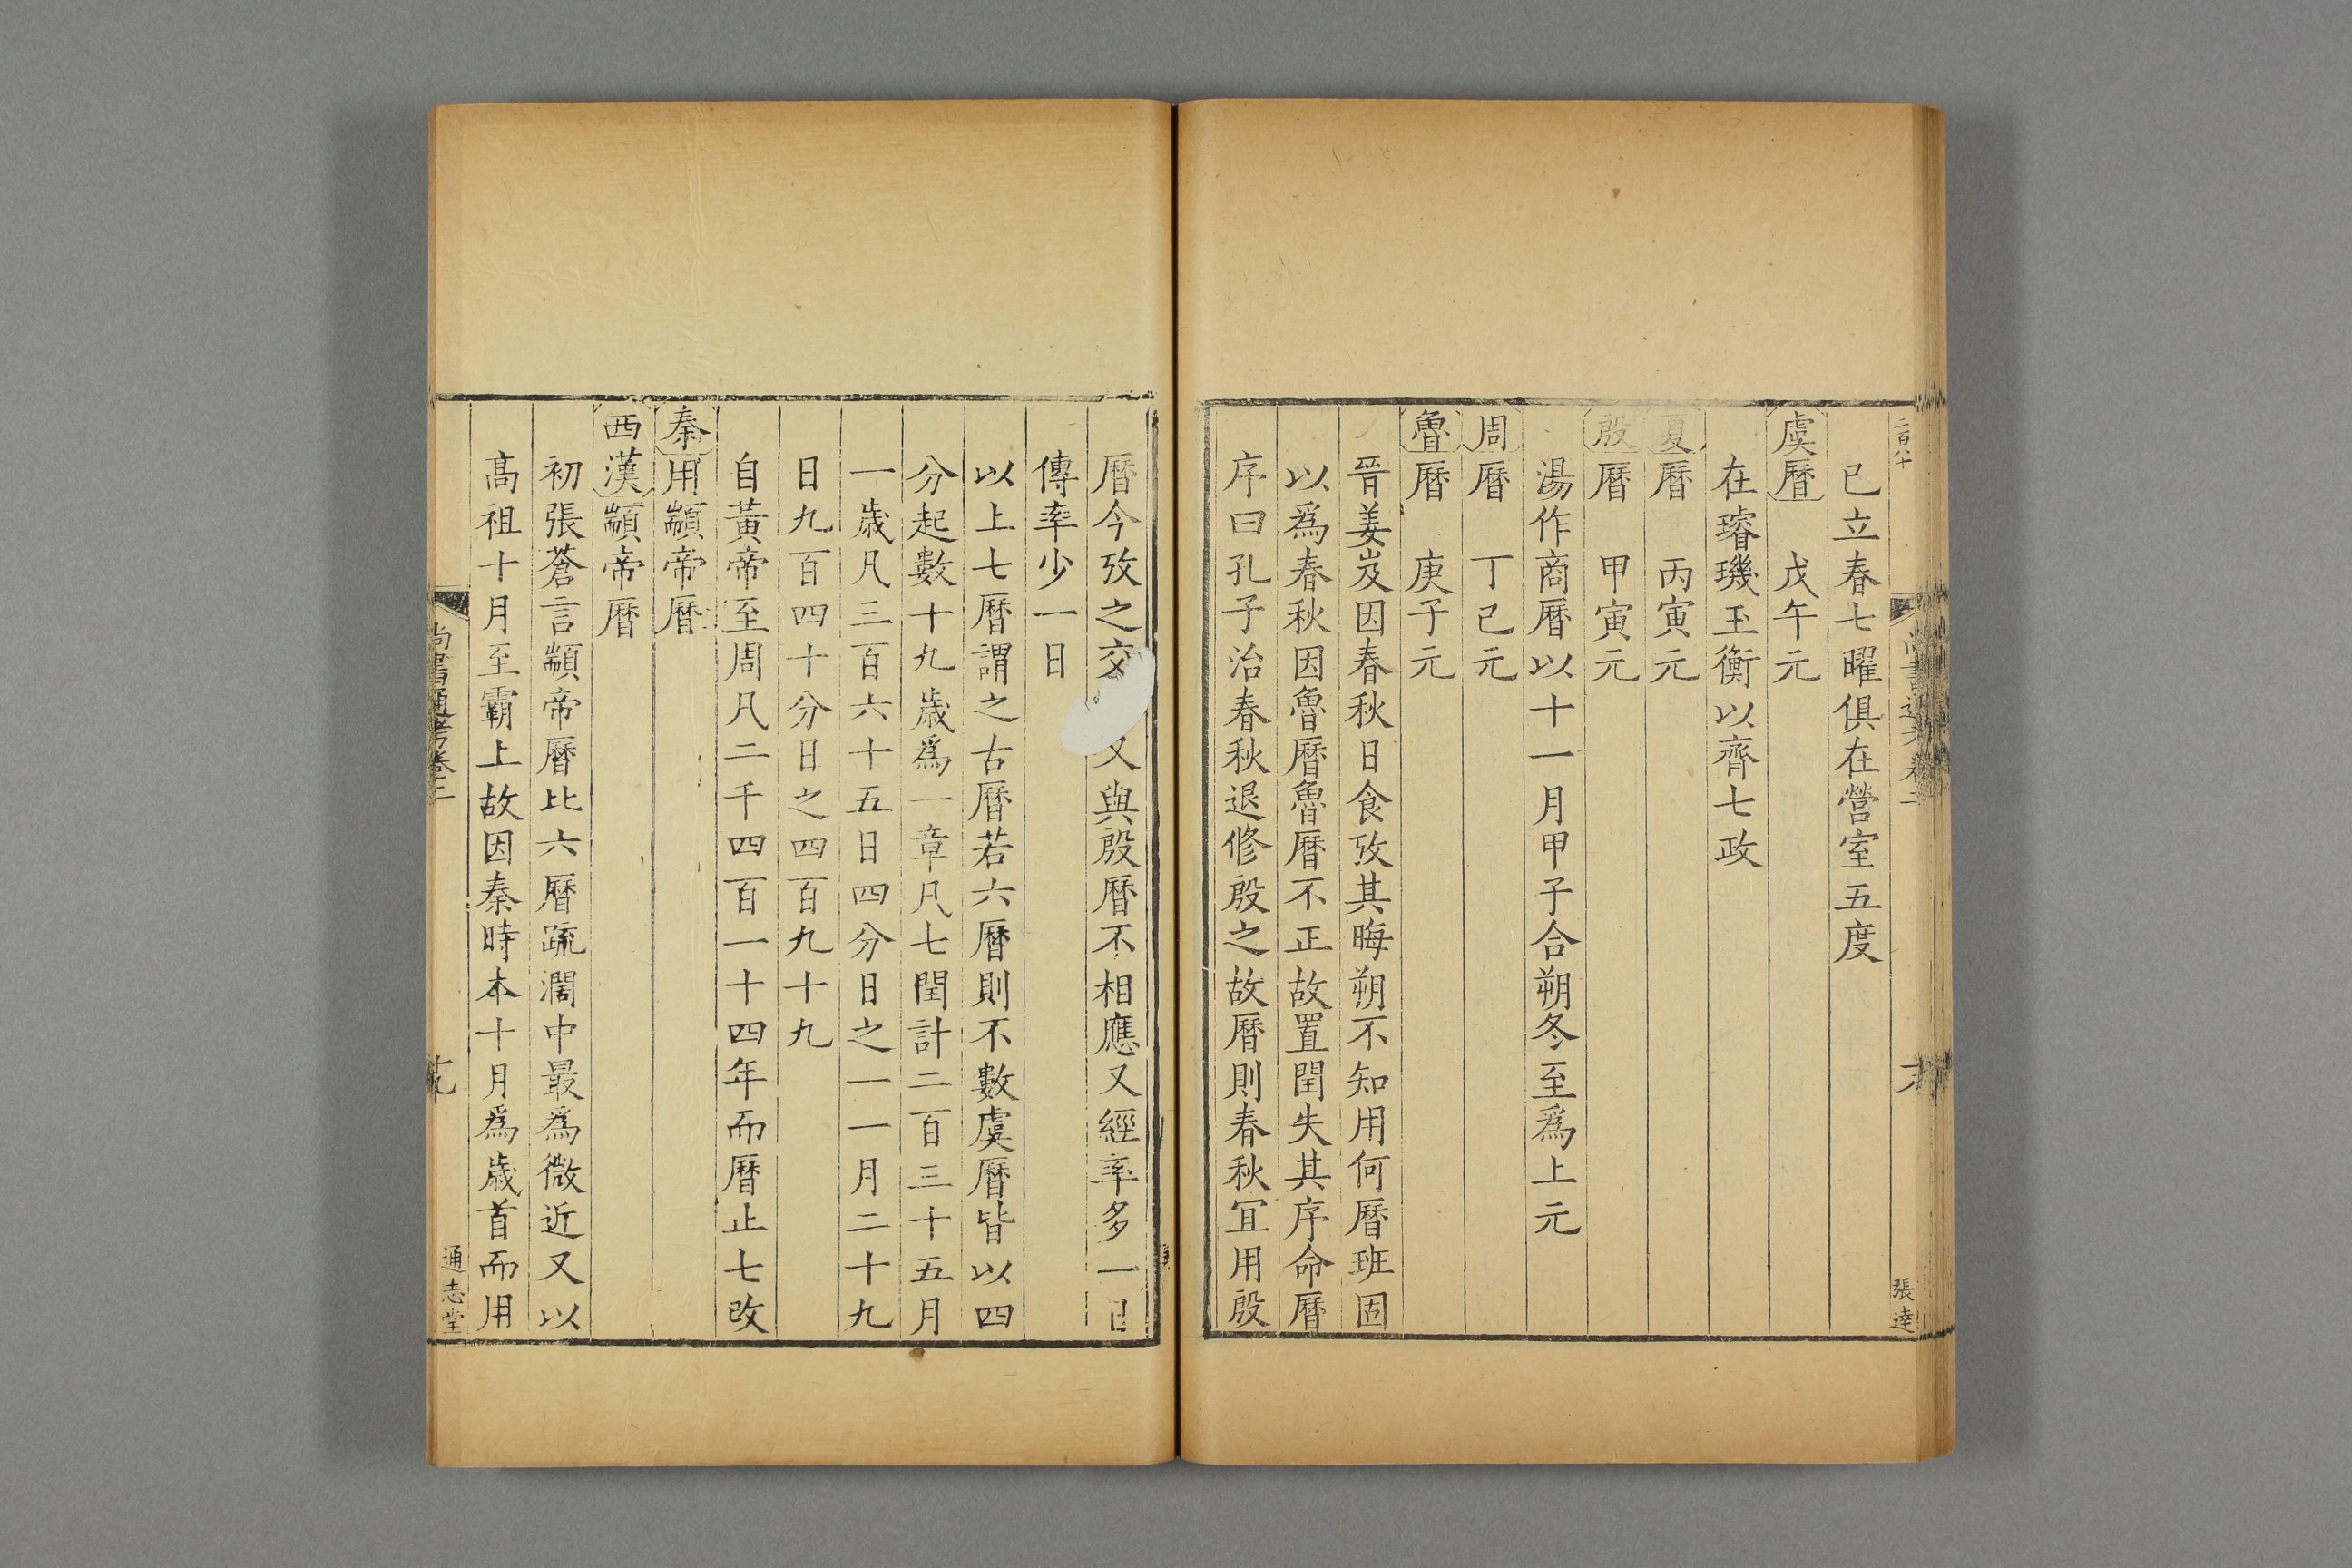 二百八十
張逹
巳立春七曜俱在營室五度
虞曆　戊午元
在璿璣玉衡以齊七政
夏曆　丙寅元
殷曆　甲寅元
湯作商曆以十一月甲子合朔冬至爲上元
周曆　丁巳元
魯曆　庚子元
晉姜岌因春秋日食攷其晦朔不知用何曆班固
以爲春秋因魯曆魯曆不正故置閏失其序命曆
序曰孔子治春秋退修殷之故曆則春秋宜用殷
曆今攷之交又與殷曆不相應又經率多一日
傳率少一日
以上七曆謂之古曆若六曆則不數虞曆皆以四
分起數十九歲爲一章凡七閏計二百三十五月
一歲凡三百六十五日四分日之一一月二十九
日九百四十分日之四百九十九
自黃帝至周凡二千四百一十四年而曆止七改
秦用顓帝曆
西漢顓帝曆
初張蒼言顓帝曆比六曆疏濶中最爲微近又以
高祖十月至霸上故因秦時本十月爲歲首而用
尚書通考卷二
十九
通志堂